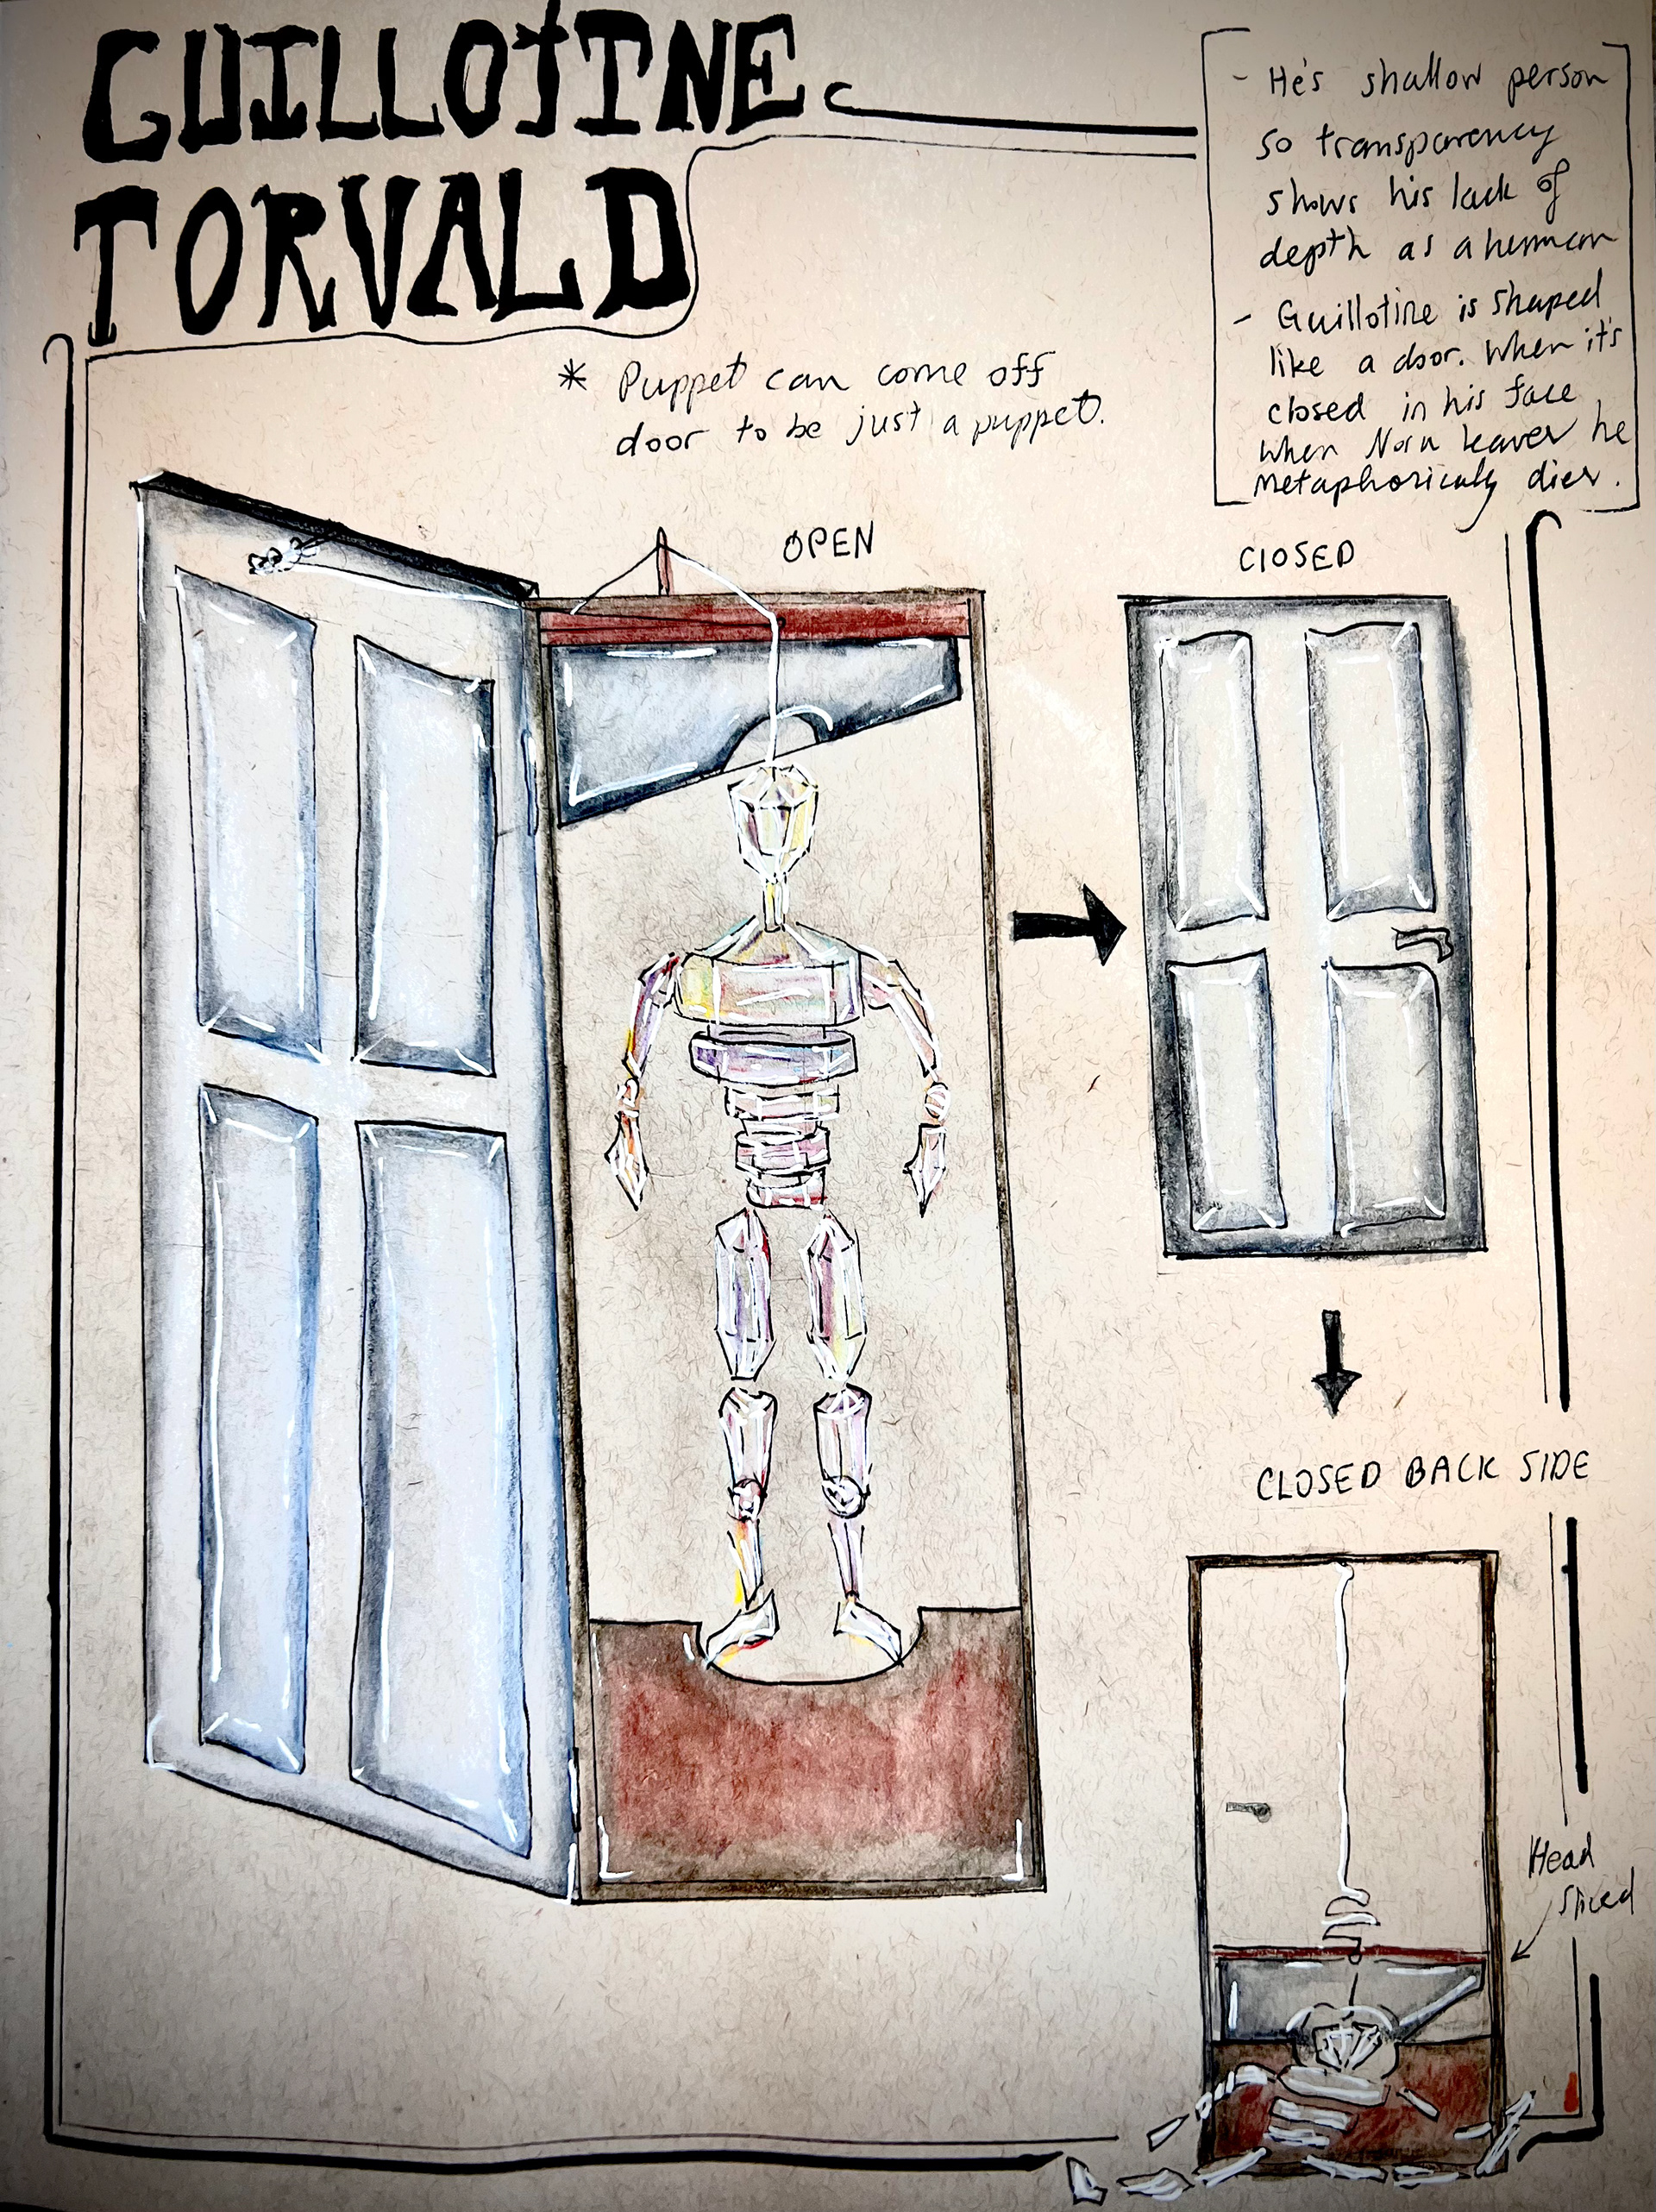 GUILLOTINE
TORVALD
- He's shallow person
so transparency
shows his lack of
depth as a human
- Guillotine is shaped
like a door. When it's
closed in his face
when Nora leaves he
metaphorically dies.
* Puppet can come off
door to be just a puppet.
OPEN
CLOSED
CLOSED BACK SIDE
Head
sliced